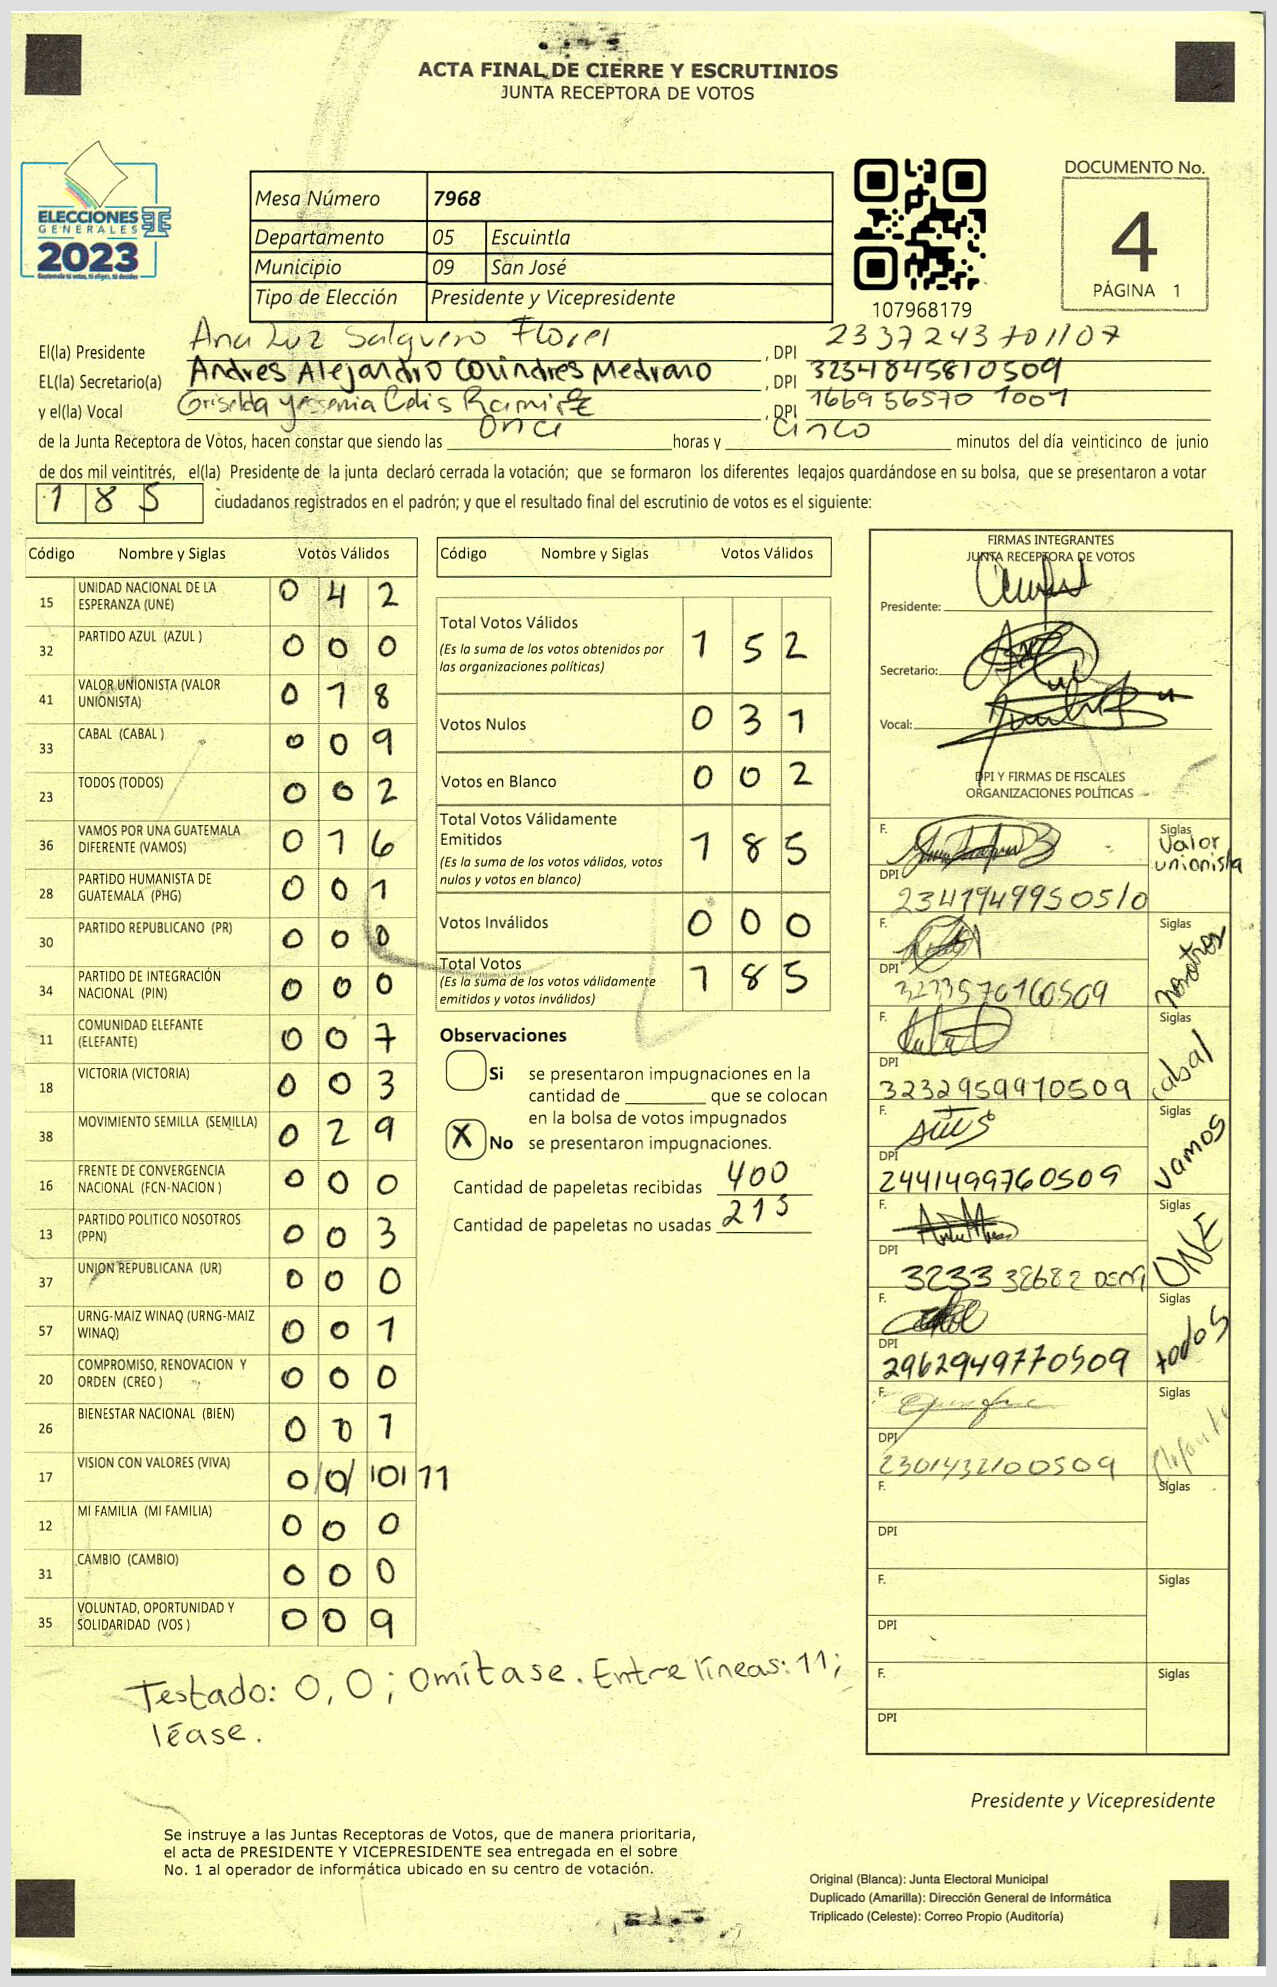 ACTA FINAL DE CIERRE Y ESCRUTINIOS
JUNTA RECEPTORA DE VOTOS
ELECCIONES
GENERALES
2023
Mesa Número 7968
Departamento 05 Escuintla
Municipio 09 San José
Tipo de Elección Presidente y Vicepresidente
107968179
DOCUMENTO No.
4
PÁGINA 1
El(la) Presidente Ana Luz Salguero Flores, DPI 2337243701107
EL(la) Secretario(a) Andres Alejandro Colindres Medrano, DPI 3234845810509
y el(la) Vocal Griselda Yessenia Celis Ramirez, DPI 1669 56570 1001
de la Junta Receptora de Votos, hacen constar que siendo las once horas y cinco minutos del día veinticinco de junio
de dos mil veintitrés, el(la) Presidente de la junta declaró cerrada la votación; que se formaron los diferentes legajos guardándose en su bolsa, que se presentaron a votar
185 ciudadanos registrados en el padrón; y que el resultado final del escrutinio de votos es el siguiente:
Código Nombre y Siglas Votos Válidos
15 UNIDAD NACIONAL DE LA ESPERANZA (UNE) 0 4 2
32 PARTIDO AZUL (AZUL ) 0 0 0
41 VALOR UNIONISTA (VALOR UNIONISTA) 0 1 8
33 CABAL (CABAL ) 0 0 9
23 TODOS (TODOS) 0 0 2
36 VAMOS POR UNA GUATEMALA DIFERENTE (VAMOS) 0 1 6
28 PARTIDO HUMANISTA DE GUATEMALA (PHG) 0 0 1
30 PARTIDO REPUBLICANO (PR) 0 0 0
34 PARTIDO DE INTEGRACIÓN NACIONAL (PIN) 0 0 0
11 COMUNIDAD ELEFANTE (ELEFANTE) 0 0 7
18 VICTORIA (VICTORIA) 0 0 3
38 MOVIMIENTO SEMILLA (SEMILLA) 0 2 9
16 FRENTE DE CONVERGENCIA NACIONAL (FCN-NACION ) 0 0 0
13 PARTIDO POLITICO NOSOTROS (PPN) 0 0 3
37 UNION REPUBLICANA (UR) 0 0 0
57 URNG-MAIZ WINAQ (URNG-MAIZ WINAQ) 0 0 1
20 COMPROMISO, RENOVACION Y ORDEN (CREO ) 0 0 0
26 BIENESTAR NACIONAL (BIEN) 0 0 1
17 VISION CON VALORES (VIVA) 0/0/10111
12 MI FAMILIA (MI FAMILIA) 0 0 0
31 CAMBIO (CAMBIO) 0 0 0
35 VOLUNTAD, OPORTUNIDAD Y SOLIDARIDAD (VOS ) 0 0 9
Testado: 0,0; Omítase. Entre líneas: 11;
léase.
Código Nombre y Siglas Votos Válidos
Total Votos Válidos 1 5 2
(Es la suma de los votos obtenidos por
las organizaciones políticas)
Votos Nulos 0 3 1
Votos en Blanco 0 0 2
Total Votos Válidamente
Emitidos 1 8 5
(Es la suma de los votos válidos, votos
nulos y votos en blanco)
Votos Inválidos 0 0 0
Total Votos 1 8 5
(Es la suma de los votos válidamente
emitidos y votos inválidos)
Observaciones
Si se presentaron impugnaciones en la
cantidad de ________ que se colocan
en la bolsa de votos impugnados
X No se presentaron impugnaciones.
Cantidad de papeletas recibidas 400
Cantidad de papeletas no usadas 215
FIRMAS INTEGRANTES
JUNTA RECEPTORA DE VOTOS
Presidente:
Secretario:
Vocal:
DPI Y FIRMAS DE FISCALES
ORGANIZACIONES POLÍTICAS
F. Siglas Valor unionista
DPI 2341949950510
F. Siglas nosotros
DPI 3233570160509
F. Siglas cabal
DPI 3232959970509
F. Siglas vamos
DPI 2441499760509
F. Siglas UNE
DPI 3233 32682
F. Siglas todos
DPI 2962949770509
F. Siglas Elefante
DPI 2301432100509
F. Siglas
DPI
F. Siglas
DPI
F. Siglas
DPI
Presidente y Vicepresidente
Se instruye a las Juntas Receptoras de Votos, que de manera prioritaria,
el acta de PRESIDENTE Y VICEPRESIDENTE sea entregada en el sobre
No. 1 al operador de informática ubicado en su centro de votación.
Original (Blanca): Junta Electoral Municipal
Duplicado (Amarilla): Dirección General de Informática
Triplicado (Celeste): Correo Propio (Auditoría)